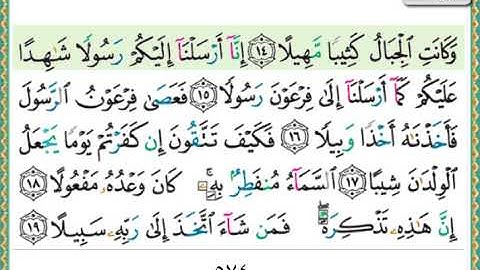 وَكَانَتِ الْجِبَالُ كَثِيبًا مَّهِيلًا ۝١٤ إِنَّآ أَرْسَلْنَآ إِلَيْكُمْ رَسُولًا شَٰهِدًا
عَلَيْكُمْ كَمَآ أَرْسَلْنَآ إِلَىٰ فِرْعَوْنَ رَسُولًا ۝١٥ فَعَصَىٰ فِرْعَوْنُ الرَّسُولَ
فَأَخَذْنَٰهُ أَخْذًا وَبِيلًا ۝١٦ فَكَيْفَ تَتَّقُونَ إِن كَفَرْتُمْ يَوْمًا يَجْعَلُ
الْوِلْدَٰنَ شِيبًا ۝١٧ السَّمَآءُ مُنفَطِرٌۢ بِهِۦ ۚ كَانَ وَعْدُهُۥ مَفْعُولًا ۝١٨
إِنَّ هَٰذِهِۦ تَذْكِرَةٌ ۖ فَمَن شَآءَ اتَّخَذَ إِلَىٰ رَبِّهِۦ سَبِيلًا ۝١٩
٥٧٤